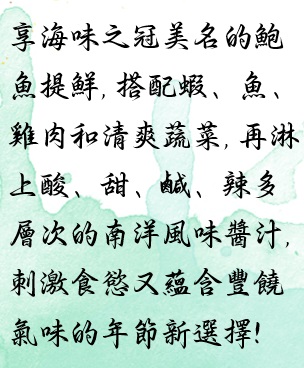 享海味之冠美名的鮑
魚提鮮,搭配蝦、魚、
雞肉和清爽蔬菜,再淋
上酸、甜、鹹、辣多
層次的南洋風味醬汁,
刺激食慾又蘊含豐饒
氣味的年節新選擇!